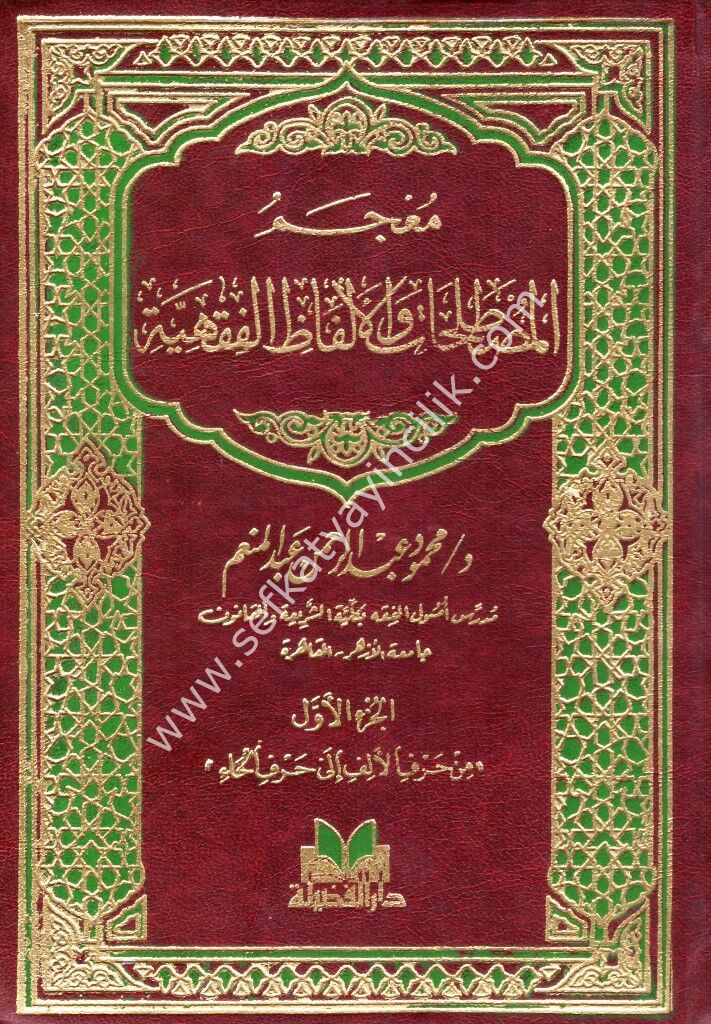 مُعْجَمُ
المُصْطَلَحَاتِ وَالأَلْفَاظِ الفِقْهِيَّةِ
د/ محمود عبد الرحمن عبد المنعم
مدرّس أصول الفقه بكليّة الشريعة والقانون
جامعة الأزهر - القاهرة
الجُزءُ الأوَّلُ
«مِنْ حَرْفِ الألِفِ إلَى حَرْفِ الحَاءِ»
دار الفضيلة
www.sefkatyayincilik.com